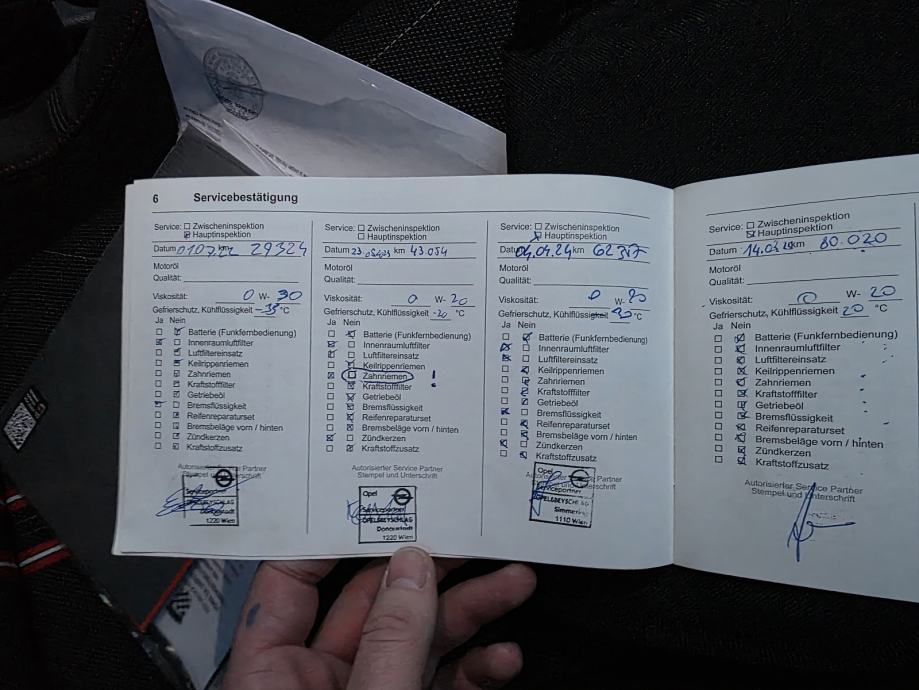 6 Servicebestätigung
Service: Zwischeninspektion
Hauptinspektion
Datum 01.07.22 km 29324
Motoröl
Qualität:
Viskosität: 0 W- 30
Gefrierschutz, Kühlflüssigkeit -35 °C
Ja Nein
Batterie (Funkfernbedienung)
Innenraumluftfilter
Luftfiltereinsatz
Keilrippenriemen
Zahnriemen
Kraftstofffilter
Getriebeöl
Bremsflüssigkeit
Reifenreparaturset
Bremsbeläge vorn / hinten
Zündkerzen
Kraftstoffzusatz
Autorisierter Service Partner
Stempel und Unterschrift
Servicepartner
Donaustadt
1220 Wien
Service: Zwischeninspektion
Hauptinspektion
Datum 23. km 43.054
Motoröl
Qualität:
Viskosität: 0 W- 20
Gefrierschutz, Kühlflüssigkeit -20 °C
Ja Nein
Batterie (Funkfernbedienung)
Innenraumluftfilter
Luftfiltereinsatz
Keilrippenriemen
Zahnriemen !
Kraftstofffilter
Getriebeöl
Bremsflüssigkeit
Reifenreparaturset
Bremsbeläge vorn / hinten
Zündkerzen
Kraftstoffzusatz
Autorisierter Service Partner
Stempel und Unterschrift
Opel
Servicepartner
OPEL&BEYSCHLAG
Donaustadt
1220 Wien
Service: Zwischeninspektion
Hauptinspektion
Datum 04.04.24 km
Motoröl
Qualität:
Viskosität: 0 W- 20
Gefrierschutz, Kühlflüssigkeit °C
Ja Nein
Batterie (Funkfernbedienung)
Innenraumluftfilter
Luftfiltereinsatz
Keilrippenriemen
Zahnriemen
Kraftstofffilter
Getriebeöl
Bremsflüssigkeit
Reifenreparaturset
Bremsbeläge vorn / hinten
Zündkerzen
Kraftstoffzusatz
Autorisierter Service Partner
Stempel und Unterschrift
Opel
Servicepartner
OPEL&BEYSCHLAG
Simmering
1110 Wien
Service: Zwischeninspektion
Hauptinspektion
Datum km 80.020
Motoröl
Qualität:
Viskosität: 0 W- 20
Gefrierschutz, Kühlflüssigkeit 20 °C
Ja Nein
Batterie (Funkfernbedienung)
Innenraumluftfilter
Luftfiltereinsatz
Keilrippenriemen
Zahnriemen
Kraftstofffilter
Getriebeöl
Bremsflüssigkeit
Reifenreparaturset
Bremsbeläge vorn / hinten
Zündkerzen
Kraftstoffzusatz
Autorisierter Service Partner
Stempel und Unterschrift